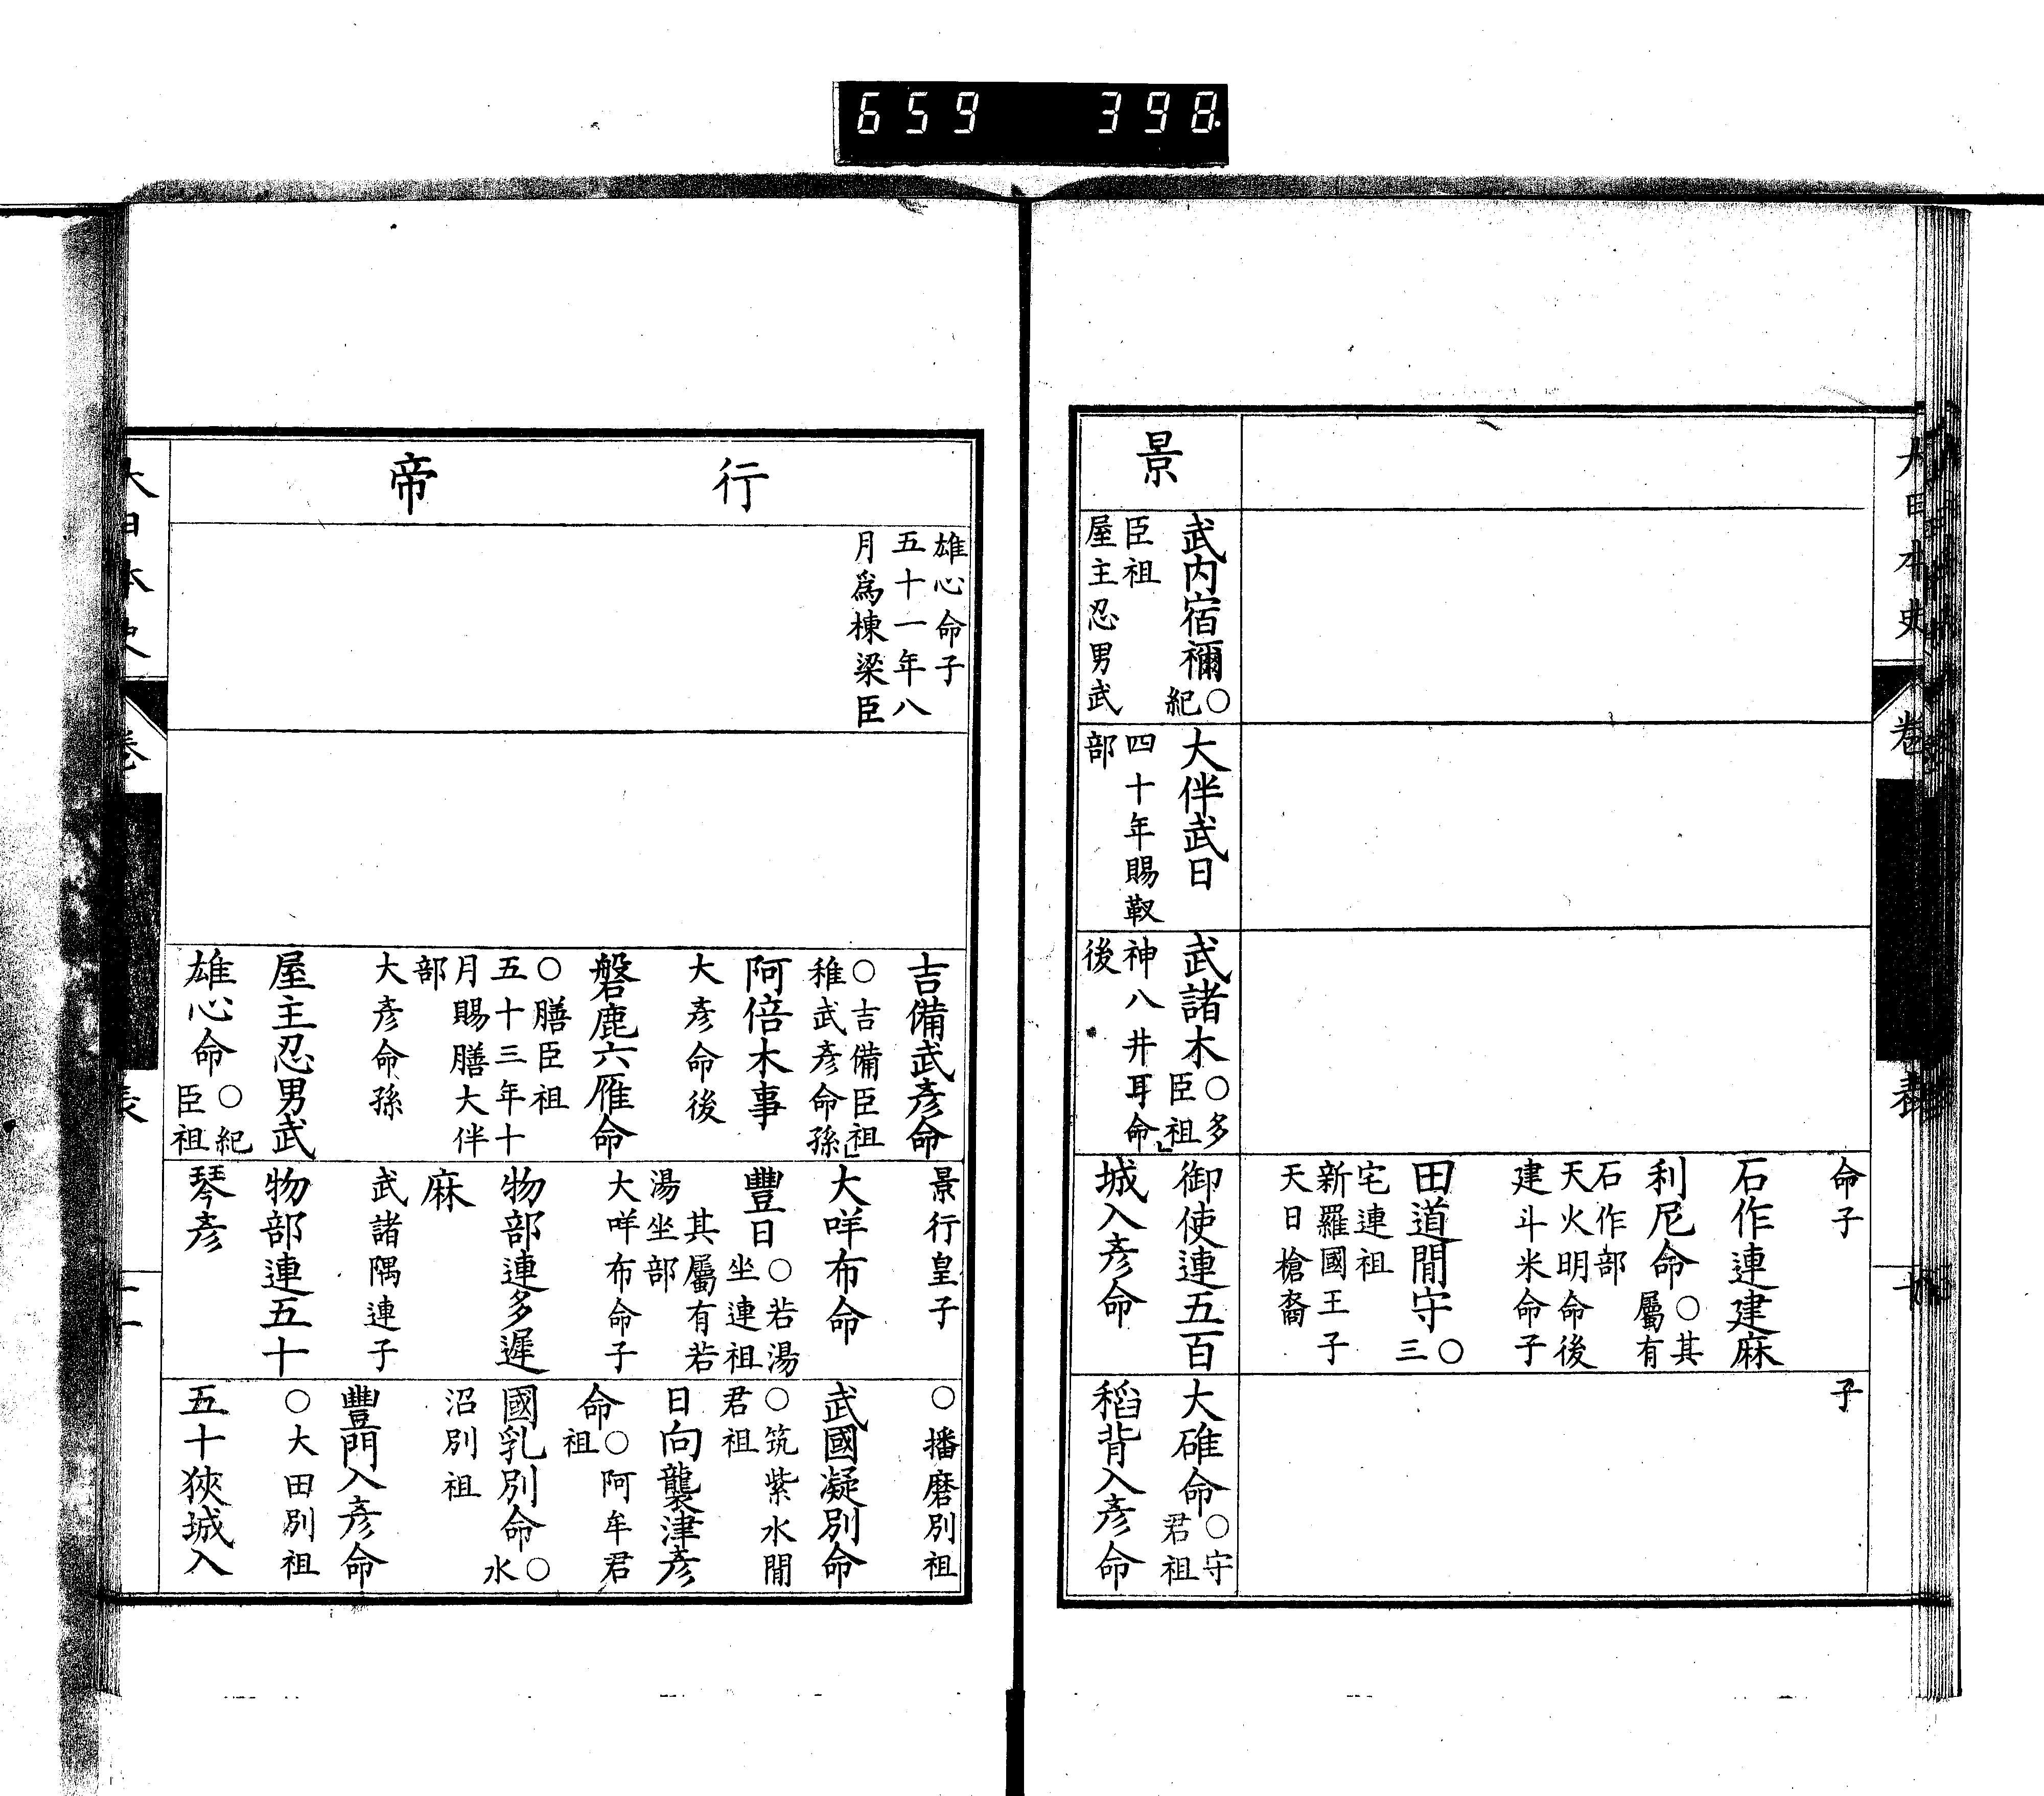 659 398
大日本史
卷
表
命子
石作連建麻
利尼命○其屬有
石作部
天火明命後
建斗米命子
田道間守○三
宅連祖
新羅國王子
天日槍裔
子
景
武内宿禰○紀
臣祖
屋主忍男武
大伴武日
四十年賜靫
部
武諸木○多臣祖
神八井耳命
後
御使連五百
城入彥命
大碓命○守君祖
稻背入彥命
行
帝
雄心命子
五十一年八
月爲棟梁臣
吉備武彥命
○吉備臣祖
稚武彥命孫
阿倍木事
大彥命後
磐鹿六雁命
○膳臣祖
五十三年十
月賜膳大伴
部
大彥命孫
屋主忍男武
雄心命○紀臣祖
景行皇子
大咩布命
豐日○若湯坐連祖
其屬有若
湯坐部
大咩布命子
物部連多遲
麻
武諸隅連子
物部連五十
琴彥
○播磨別祖
武國凝別命
○筑紫水間
君祖
日向襲津彥
命○阿牟君祖
國乳別命○水
沼別祖
豐門入彥命
○大田別祖
五十狹城入
大日本史
卷
表